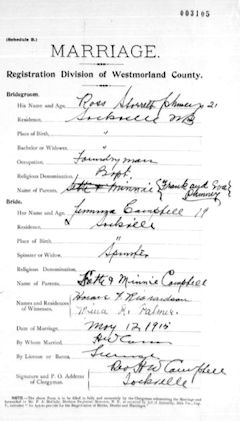 003105
(Schedule B.)
MARRIAGE.
Registration Division of Westmorland County.
Bridegroom.
His Name and Age, Ross Sterrett Phinney 21
Residence, Sackville NB
Place of Birth, "
Bachelor or Widower, "
Occupation, Foundryman
Religious Denomination, Bapt.
Name of Parents, Seth & Minnie (Frank and Eva Phinney
Bride.
Her Name and Age, Jemima Campbell 19
Residence, Sackville
Place of Birth, "
Spinster or Widow, Spinster
Religious Denomination,
Name of Parents, Seth & Minnie Campbell
Names and Residences of Witnesses, Horace Richardson
K. Palmer
Date of Marriage, May 12 1915
By Whom Married, HW Cann
By License or Banns, License
Signature and P. O. Address of Clergyman, Rev HW Campbell
Sackville